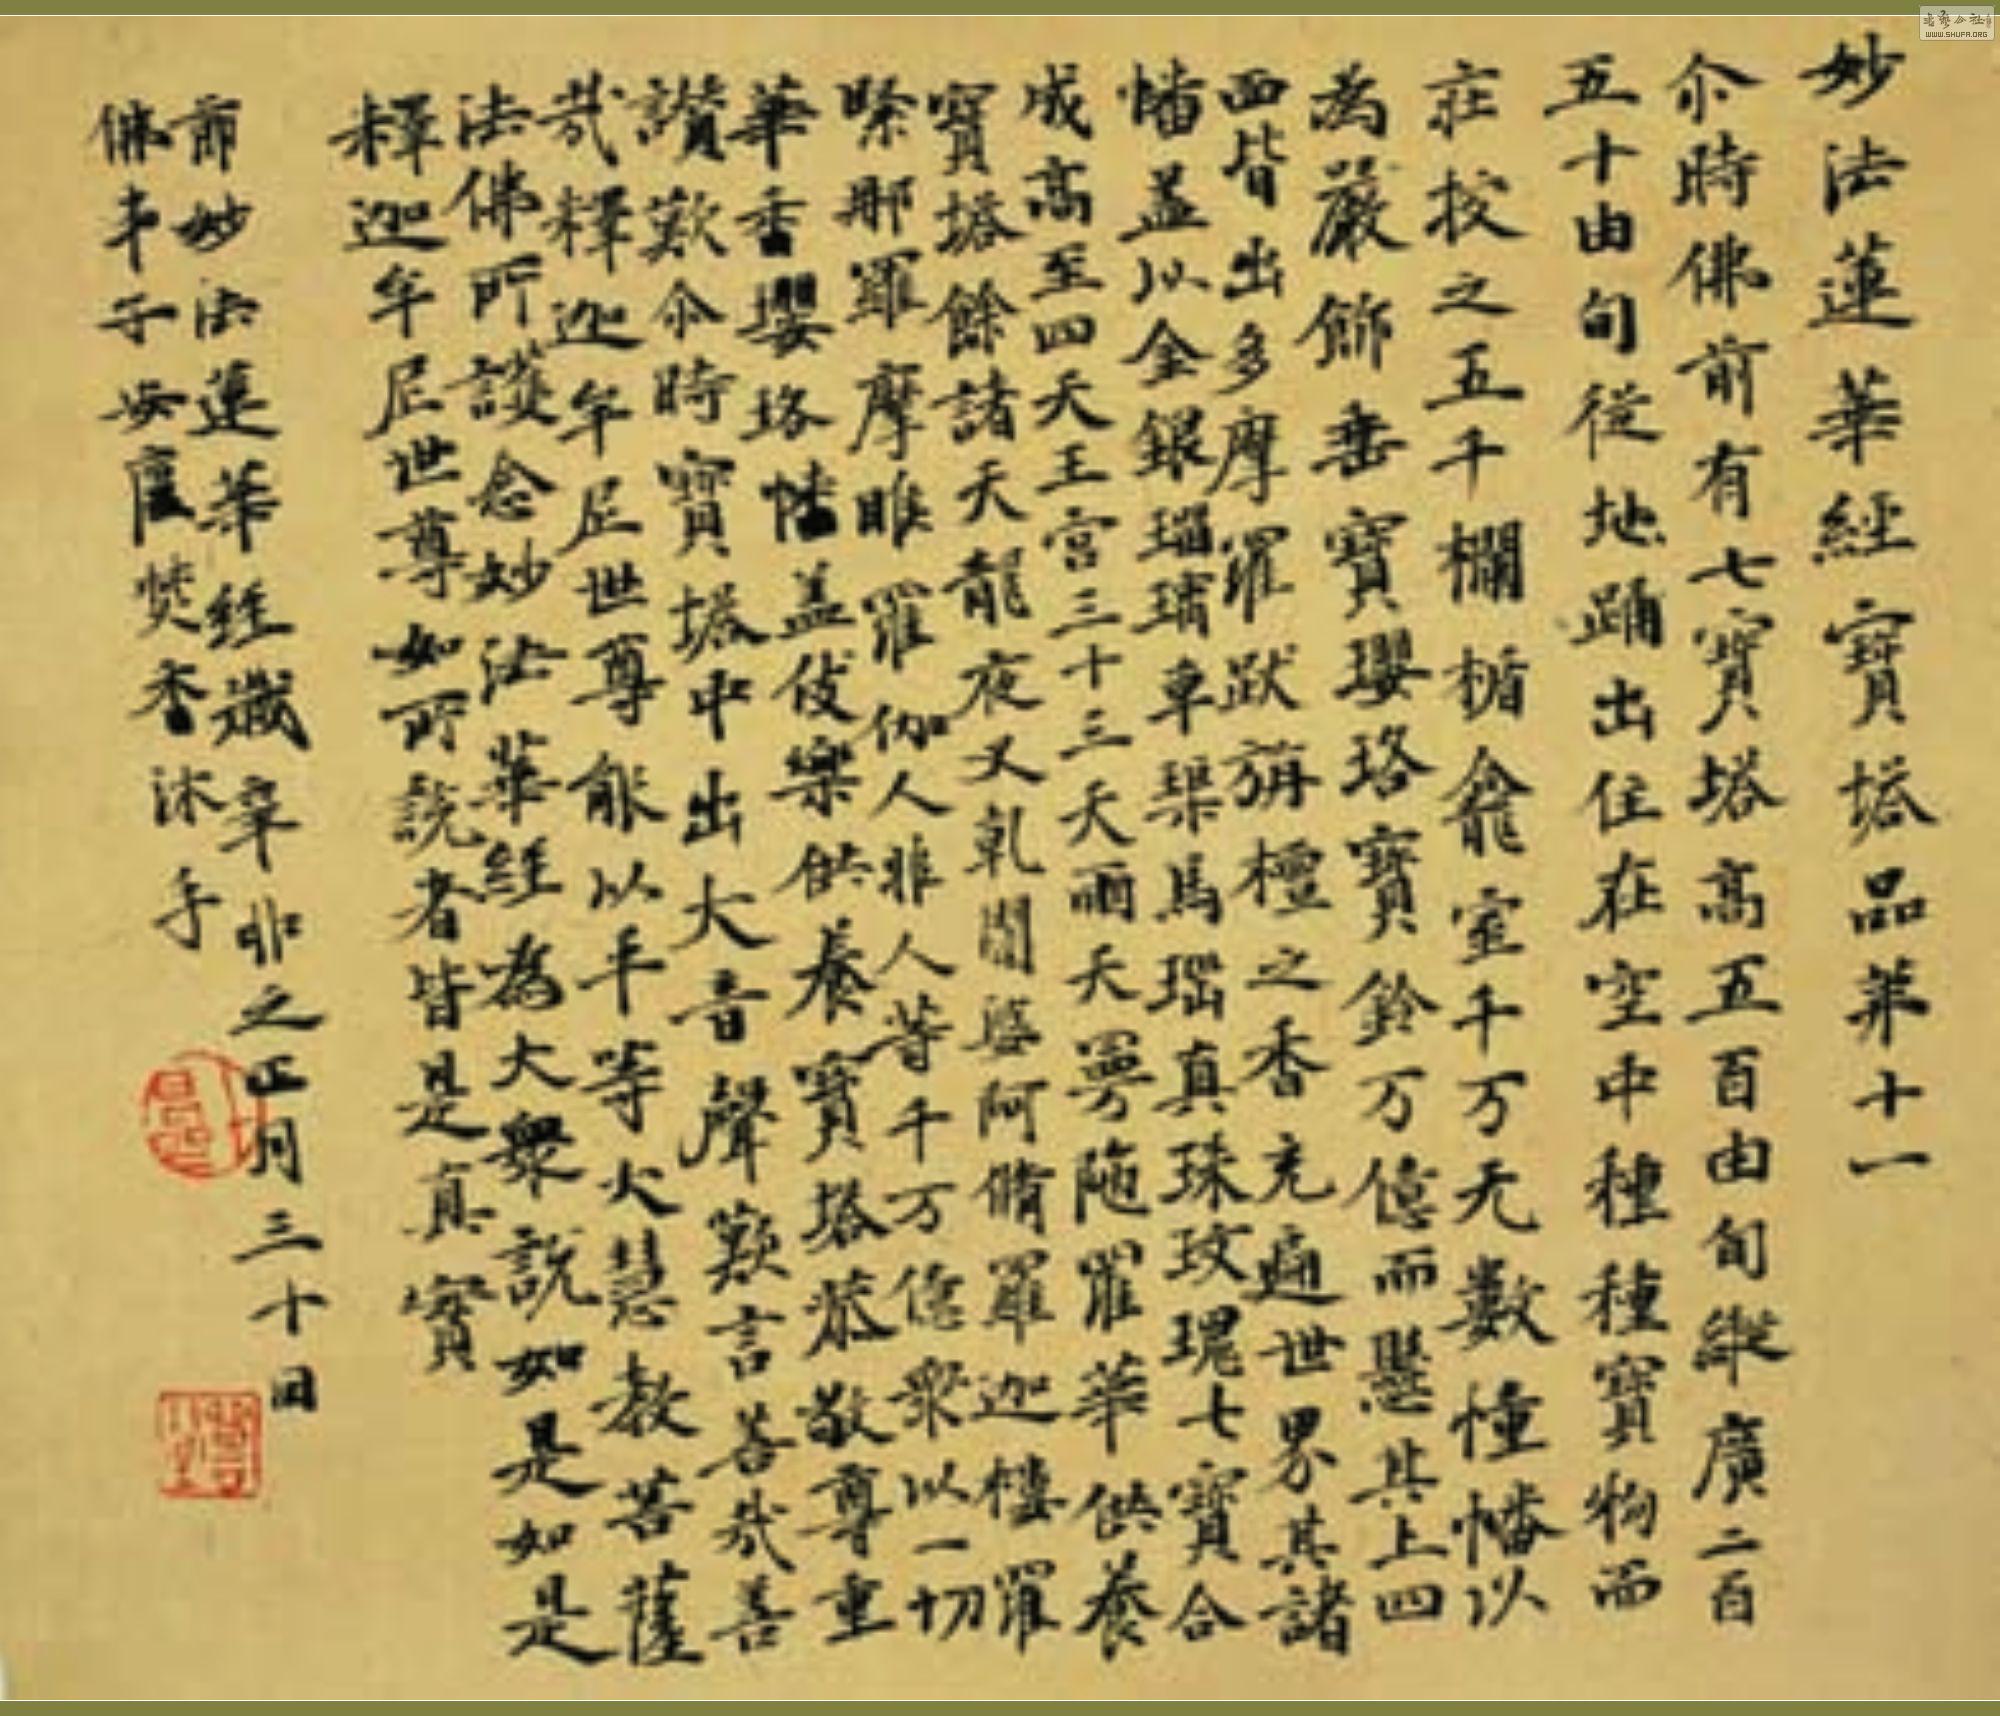 妙法蓮華經寶塔品苐十一
尒時佛前有七寶塔高五百由旬縱廣二百
五十由旬從地踊出住在空中種種寶物而
莊挍之五千欄楯龕室千万无數幢幡以
為嚴飾垂寶瓔珞寶鈴万億而懸其上四
面皆出多摩羅跋旃檀之香充遍世界其諸
幡盖以金銀瑠璃車渠馬瑙真珠玫瑰七寶合
成高至四天王宮三十三天雨天曼陁羅華供養
寶塔餘諸天龍夜叉乾闥婆阿脩羅迦樓羅
緊那羅摩睺羅伽人非人等千万億衆以一切
華香瓔珞幡盖伎樂供養寶塔恭敬尊重
讚歎尒時寶塔中出大音聲歎言善哉善
哉釋迦牟尼世尊能以平等大慧教菩薩
法佛所護念妙法華經為大衆說如是如是
釋迦牟尼世尊如所說者皆是真實
莭妙法蓮華經歲辛卯之正月三十日
佛弟子 焚香沐手
WWW.SHUFA.ORG